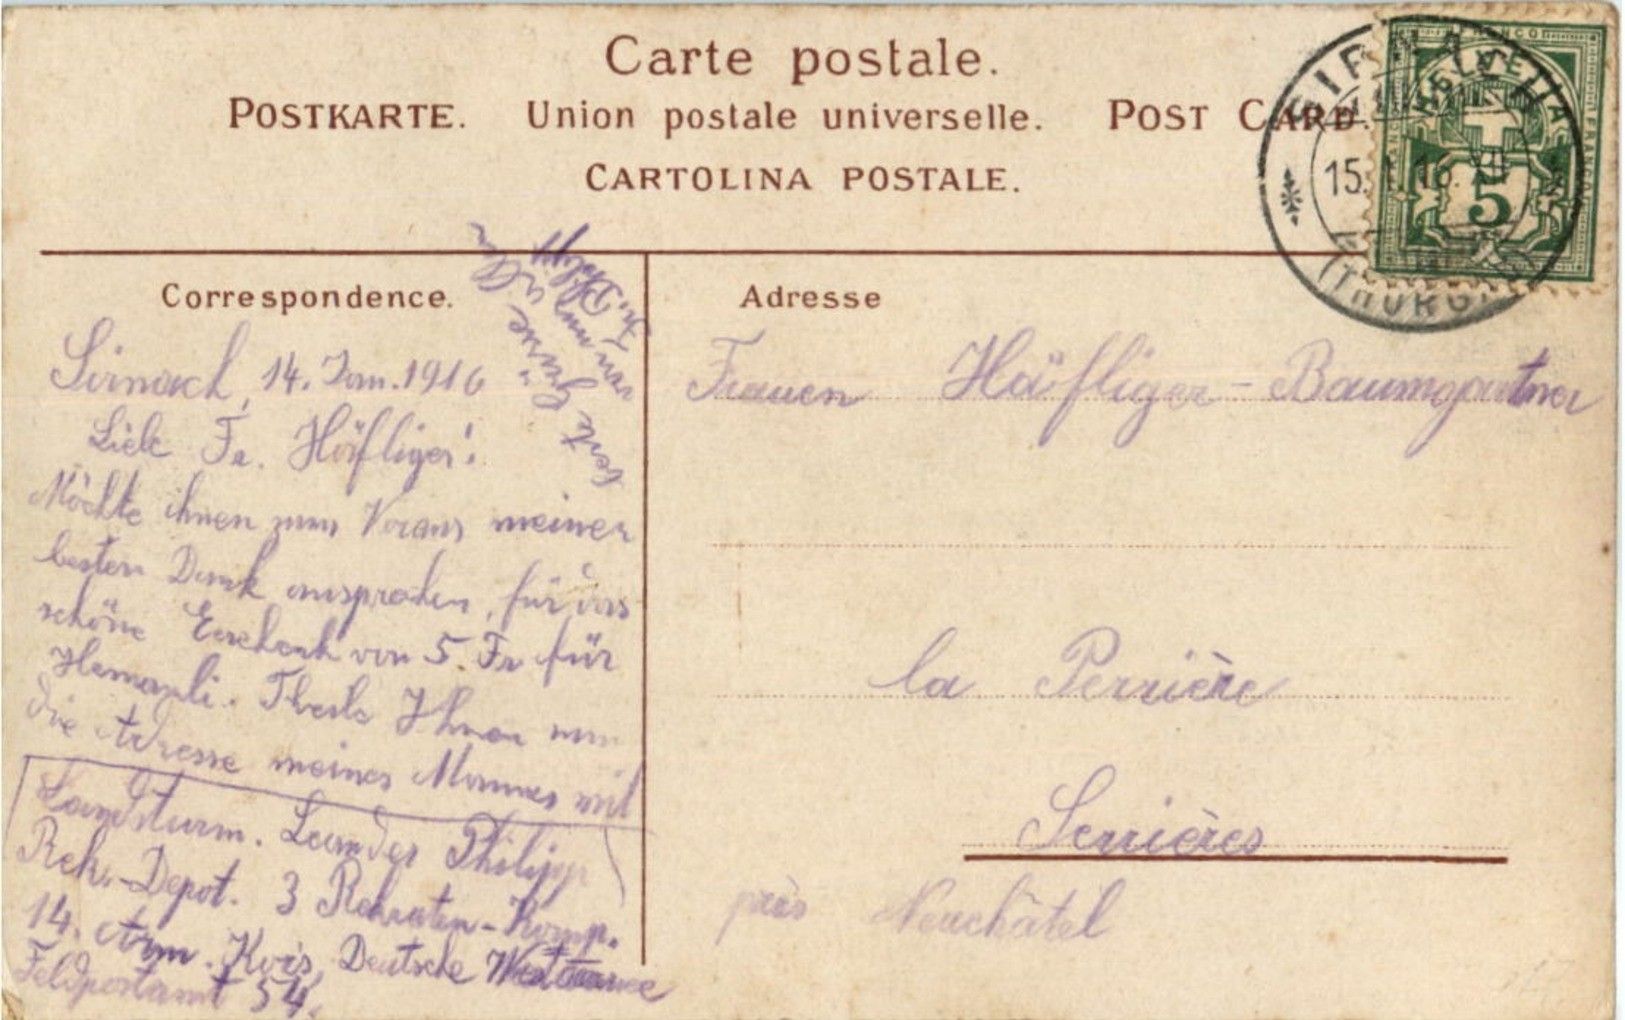 Carte postale.
POSTKARTE. Union postale universelle. POST CARD.
CARTOLINA POSTALE.
SIRNACH
(THURG.)
15.
HELVETIA
FRANCO
5
Correspondence.
Sirnach, 14. Jan. 1916
Liebe Fr. Häfliger!
Möchte ihnen zum Voraus meinen
besten Dank aussprechen, für das
schöne Geschenk von 5. Fr für
Theile Ihnen nun
die Adresse meines Mannes mit
Landsturm. Leander Philipp
Rek.-Depot. 3 Rekruten-Komp.
14. Arm. Deutsche
Feldpostamt 54.
beste Grüsse
von
Fr. Philipp
Adresse
Frauen Häfliger-Baumgartner
la Perrière
Serrières
près Neuchâtel